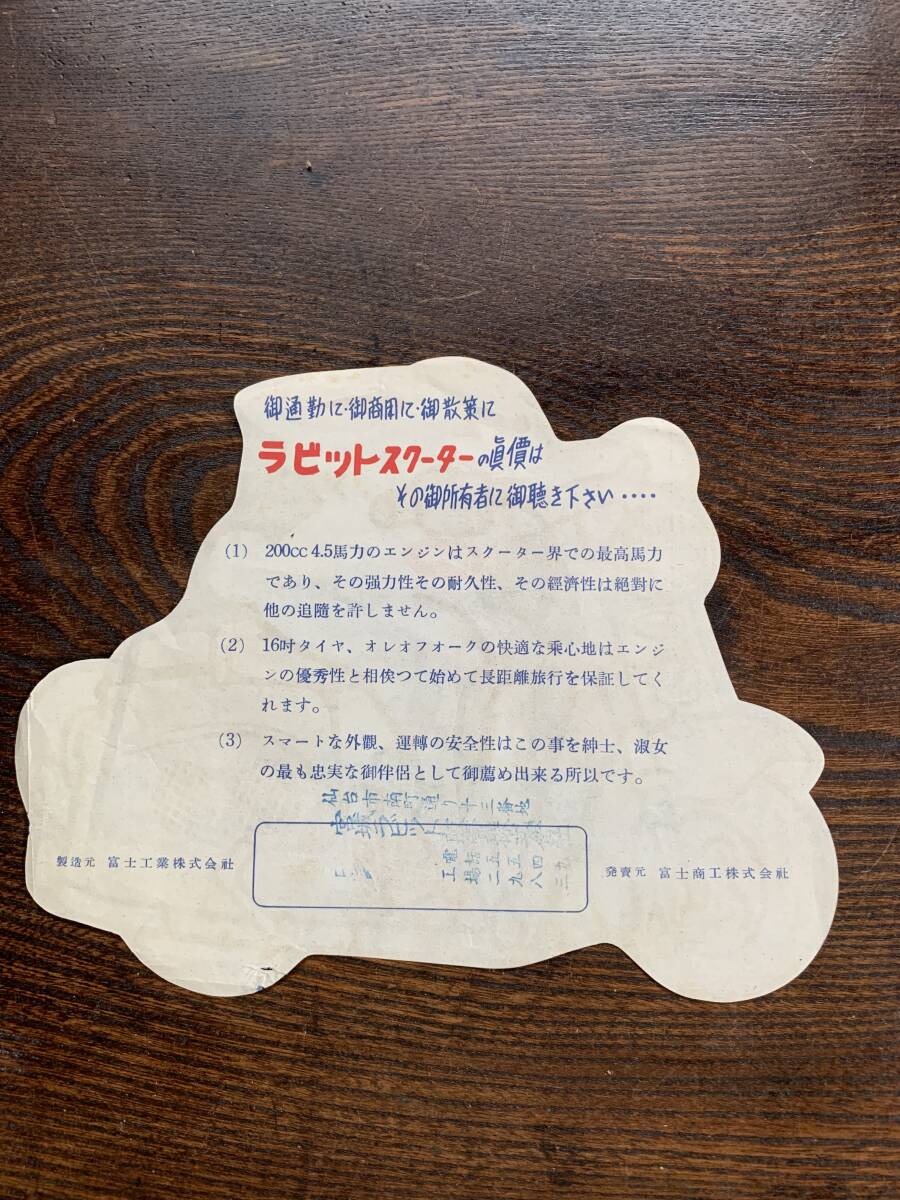 御通勤に·御商用に·御散策に
ラビットスクーターの眞價は
その御所有者に御聴き下さい····
(1) 200cc 4.5馬力のエンジンはスクーター界での最高馬力
であり、その强力性その耐久性、その經濟性は絕對に
他の追隨を許しません。
(2) 16吋タイヤ、オレオフオークの快適な乘心地はエンジ
ンの優秀性と相俟つて始めて長距離旅行を保証してく
れます。
(3) スマートな外觀、運轉の安全性はこの事を紳士、淑女
の最も忠実な御伴侶として御薦め出来る所以です。
仙台市南町通り十三番地
宮城ラビット
製造元 富士工業株式会社
発賣元 富士商工株式會社